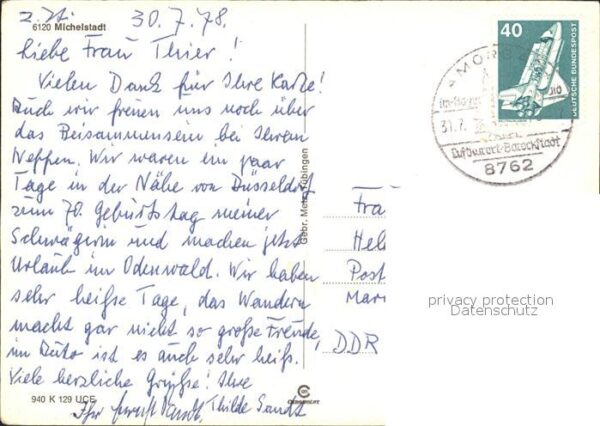 z. Zt. 30.7.78.
6120 Michelstadt
Liebe Frau Thier!
Vielen Dank für Ihre Karte!
Auch wir freuen uns noch über
das Beisammensein bei Ihrem
Neffen. Wir waren ein paar
Tage in der Nähe von Düsseldorf
zum 70. Geburtstag meiner
Schwägerin und machen jetzt
Urlaub im Odenwald. Wir haben
sehr heiße Tage, das Wandern
macht gar nicht so große Freude,
im Auto ist es auch sehr heiß.
Viele herzliche Grüße! Ihre
Thilde Sandt
940 K 129 UCE
Gebr. Metz Tübingen
40
DEUTSCHE BUNDESPOST
AMORB
31.7.
Luftkurort-Barockstadt
8762
Fra
Hel
Post
Mar
DDR
privacy protection
Datenschutz